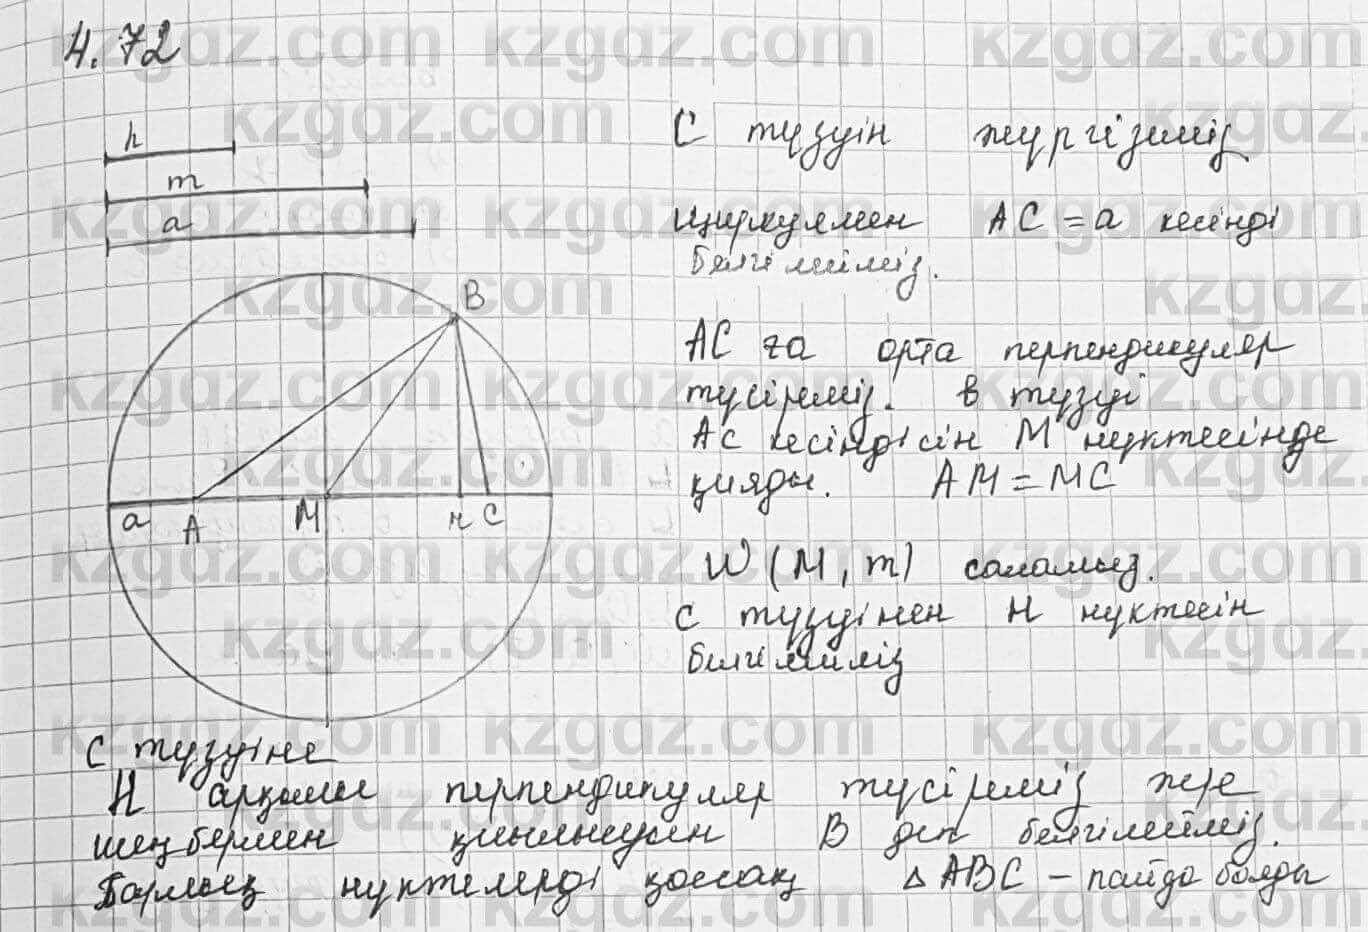 4.72
h
m
a
С түзуін жүргіземіз
Циркульмен AC = a кесінді
белгілейміз.
B
AC ға орта перпендикуляр
түсіреміз. в түзуі
AC кесіндісін M нүктесінде
қияды. AM = MC
a A M н C
W (M, m) саламыз.
с түзуінен H нүктесін
белгілейміз
С түзуіне
H арқылы перпендикуляр түсіреміз және
шеңбермен қиылысуын B деп белгілейміз.
Барлық нүктелерді қоссақ △ABC – пайда болды
kzgdz.com